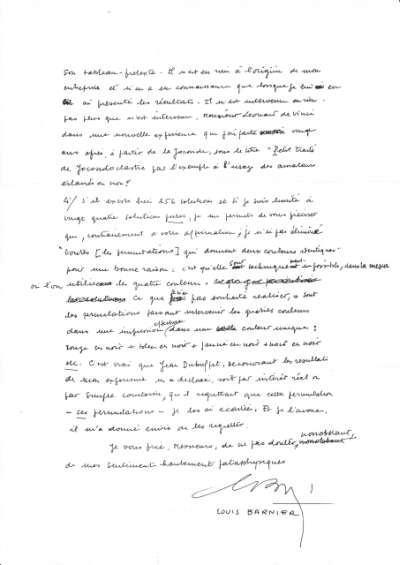 son tableau-prétexte. Il n'est en rien à l'origine de mon
entreprise et il n'en a eu connaissance que lorsque je lui en
ai présenté les résultats. Il n'est intervenu en rien
pas plus que n'est intervenu, Monsieur Léonard de Vinci
dans une nouvelle expérience que j'ai faite vingt
ans après, à partir de la Joconde, sous le titre "Petit traité
de Jocondoclastie par l'exemple à l'usage des amateurs
éclairés ou non".
4°/ S'il existe bien 256 solutions et si je suis limité à
vingt quatre solutions pures, je me permets de vous préciser
que, contrairement à votre affirmation, je n'ai pas éliminé
"toutes [les permutations] qui donnent deux couleurs identiques"
pour une bonne raison : c'est qu'elles sont techniquement impossibles, dans la mesure
où l'on utilise les quatre couleurs.
Ce que je n'ai pas souhaité réaliser, ce sont
les permutations faisant intervenir les quatre couleurs
dans une impression effectuée dans une couleur unique :
rouge en noir + bleu en noir + jaune en noir + noir en noir
etc. C'est vrai que Jean Dubuffet, découvrant les résultats
de mon expérience m'a déclaré, soit par intérêt réel ou
par simple courtoisie, qu'il regrettait que cette permutation
- ces permutations - je les ai écartées. Et je l'avoue,
il m'a donné envie de les regretter.
Je vous prie, Messieurs, de ne pas douter, nonobstant,
de mes sentiments hautement pataphysiques
LOUIS BARNIER